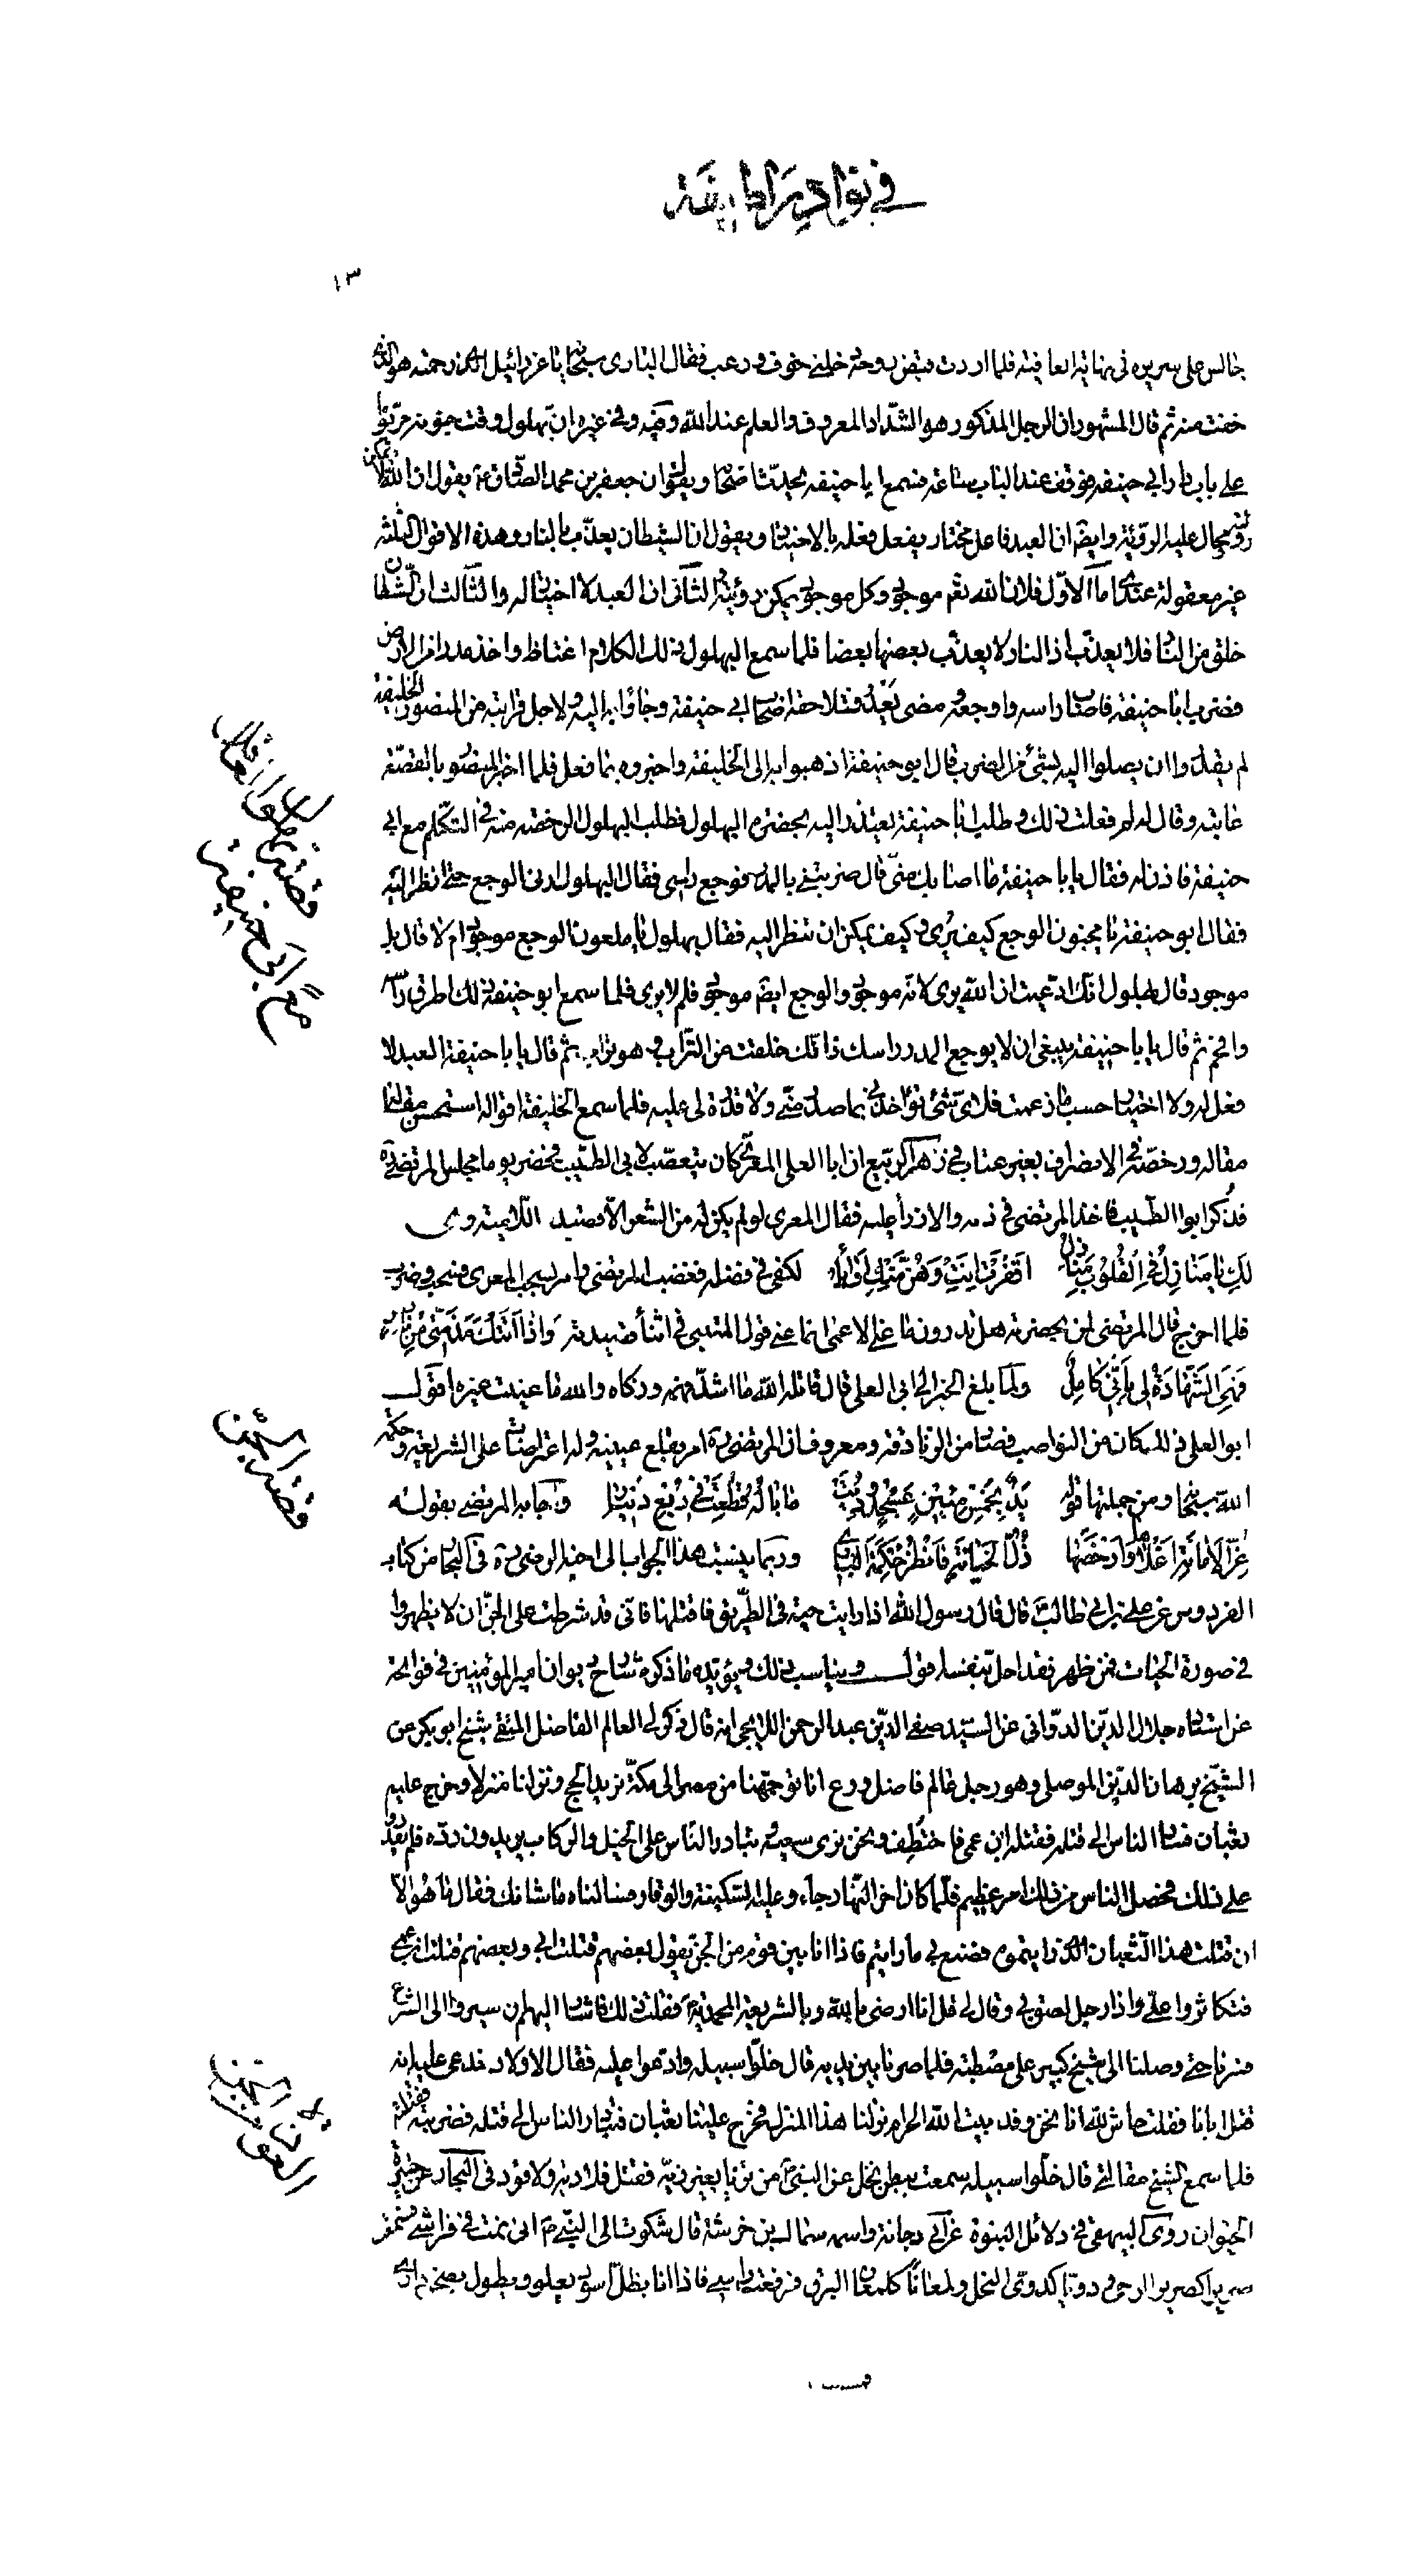 في نوادر
١٣
جالس على سريره في نهاية العافية فلما اردت قبض روحه خلني خوف ورعب فقال الباري سبحانه يا عزرائيل الذي رحمته هو الذي
خفت منه ثم قال المشهور ان الرجل المذكور هو الشداد المعروف والعلم عند الله وفيه وفي غيره ان بهلول وقت جنونه مر يوما
على باب دار ابي حنيفه فوقف عند الباب ساعة فسمع ابا حنيفه يحدث اصحابه ويقول ان جعفر بن محمد الصادق ع يقول ان الله لا يمكن
رؤيته ومحال عليه الرؤية وايضا ان العبد فاعل مختار يفعل فعله بالاختيار ويقول ان الشيطان يعذب بالنار وهذه الاقوال الثلثه
غير معقولة عندي اما الاول فلان الله تعم موجود وكل موجود يمكن رؤيته الثاني ان العبد لا اختيار له والثالث ان الشيطان
خلق من النار فلا يعذب اذ النار لا يعذب بعضها بعضا فلما سمع البهلول ذلك الكلام اغتاظ واخذ مدرا من الارض
فضرب ابا حنيفه فاصاب راسه واوجعه ومضى يعدو فتلاحقه اصحاب ابي حنيفة وجاؤا به اليه ولاجل قرابته من المنصور الخليفة
لم يقدروا ان يصلوا اليه بشئ من الضرب قال ابو حنيفة اذهبوا به الى الخليفة واخبروه بما فعل فلما اخبر المنصور بالقصة
عاتبه وقال له لم فعلت ذلك وطلب ابا حنيفة يعتذر اليه بحضرة البهلول فطلب البهلول الرخصه منه في التكلم مع ابي
حنيفة فاذن له فقال يا ابا حنيفة ما اصابك مني قال ضربتني بالمدر فوجع راسي فقال البهلول ارني الوجع حتى انظر اليه
فقال ابو حنيفة يا مجنون الوجع كيف يرى وكيف يمكن ان تنظر اليه فقال بهلول يا ملعون الوجع موجود ام لا قال بلى
موجود قال بهلول انك ادعيت ان الله يرى لانه موجود والوجع ايضا موجود فلم لا يرى فلما سمع ابو حنيفة ذلك اطرق راسه
وافحم ثم قال يا ابا حنيفة ينبغي ان لا يوجع المدر راسك ذاتك خلقت من التراب وهو تراب ثم قال يا ابا حنيفة العبد لا
فعل له ولا اختيار حسب ما زعمت فلاي شئ تؤاخذني بما صدر مني ولا قدرة لي عليه فلما سمع الخليفة اقواله استحسن
مقاله ورخصه في الانصراف بغير عتاب في زهر الربيع ان ابا العلى المعري كان يتعصب لابي الطيب فحضر يوما مجلس المرتضى ره
فذكر ابو الطيب فاخذ المرتضى في ذمه والازراء عليه فقال المعري لو لم يكن له من الشعر الا قصيدته اللامية وهي
لك يا منازل في القلوب منازل اقفرت انت وهن منك اواهل لكفى في فضله فغضب المرتضى وامر بسحب المعري فسحب وضرب
فلما اخرج قال المرتضى لمن بحضرته هل تدرون ما عنى الاعمى انما عنى قول المتنبي في اثناء قصيدته واذا اتتك مذمتي من ناقص
فهي الشهادة لي باني كامل ولما بلغ الخبر الى ابي العلى قال قاتله الله ما اشد فهمه وذكاه والله ما عنيت غيره اقول
ابو العلى ذلك كان من النواصب فصار من الزنادقه ومعروف ان المرتضى ره امر بقلع عينيه وله اعتراضات على الشريعة وحكمة
الله سبحانه ومن جملتها قوله يد بخمس مئين عسجد وديت ما بالها قطعت في ربع دينار واجابه المرتضى بقوله
عز الامانة اغلاها وارخصها ذل الخيانة فانظر حكمة الباري وربما ينسب هذا الجواب الى اخيه الرضي ره في البحار من كتاب
الفردوس عن علي بن ابي طالب ع قال قال رسول الله اذا رايت حية في الطريق فاقتلها فاني قد شرطت على الجن ان لا يظهروا
في صورة الحيات فمن ظهر فقد احل بنفسه اقول ويناسب ذلك ويؤيده ما ذكره شارح ديوان امير المؤمنين في فواتحه
عن استاده جلال الدين الدواني عن السيد صفي الدين عبد الرحمن الايجي انه قال ذكر لي العالم الفاضل المتقي شيخ ابو بكر عن
الشيخ برهان الدين الموصلي وهو رجل عالم فاضل ورع انا توجهنا من مصر الى مكة نريد الحج ونزلنا منزلا وخرج عليهم
ثعبان فثار الناس الى قتله فقتله ابن عمي فاختطف ونحن نرى سعيه وتبادر الناس على الخيل والركاب يريدون رده فلم يقدروا
على ذلك فحصل للناس من ذلك امر عظيم فلما كان اخر النهار جاء وعليه السكينة والوقار فسالناه ما شانك فقال ما هو الا
ان قتلت هذا الثعبان الذي رايتموه فصنع بي ما رايتم فاذا انا بين قوم من الجن يقول بعضهم قتلت ابي وبعضهم قتلت ابن عمي
فتكاثروا علي واذا رجل لصق بي وقال لي قل انا ارضى بالله وبالشريعة المحمدية ص فقلت ذلك فاشار اليهم ان سيروا الى الشرع
فسرنا حتى وصلنا الى شيخ كبير على مصطبه فلما صرنا بين يديه قال خلوا سبيله وادعوا عليه فقال الاولاد ندعي عليه انه
قتل ابانا فقلت حاش لله انا نحن وفد بيت الله الحرام نزلنا هذا المنزل فخرج علينا ثعبان فتبادر الناس الى قتله فضربته فقتلته
فلما سمع الشيخ مقالتي قال خلوا سبيله سمعت ببطن نخل عن النبي ص من تزيا بغير زيه فقتل فلا دية ولا قود في البحار عن حيوة
الحيوان روى البيهقي في دلائل النبوة عن ابي دجانة واسمه سماك بن خرشة قال شكوت الى النبي ص اني نمت في فراشي فسمعت
صريرا كصرير الرحى ودويا كدوي النحل ولمعانا كلمعان البرق فرفعت راسي فاذا انا بظل اسود يعلو ويطول بصحن داري
قصة بهلول العاقل
مع ابي حنيفة
قصة الجن
العوذ من الجن